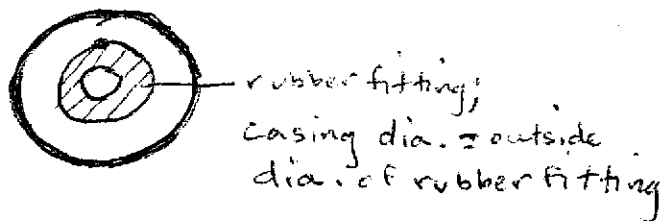 rubber fitting;
casing dia. = outside
dia. of rubber fitting